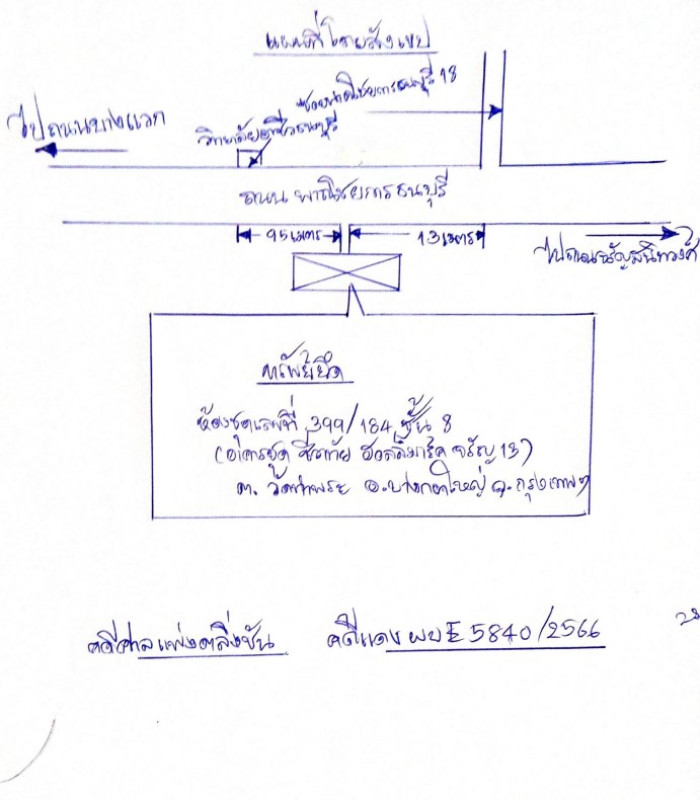 แผนที่โดยสังเขป
ซอยพาณิชยการธนบุรี 18
ไปถนนบางแวก
วิทยาลัยอาชีวธนบุรี
ถนน พาณิชยการธนบุรี
95 เมตร
13 เมตร
ไปถนนจรัญสนิทวงศ์
ทรัพย์ยึด
ห้องชุดเลขที่ 399/184 ชั้น 8
(อาคารชุด ศุภาลัย จรัญ 13)
ต. วัดท่าพระ อ. บางกอกใหญ่ จ. กรุงเทพฯ
คดีศาลแพ่งตลิ่งชัน คดีแดง ผบE 5840/2566